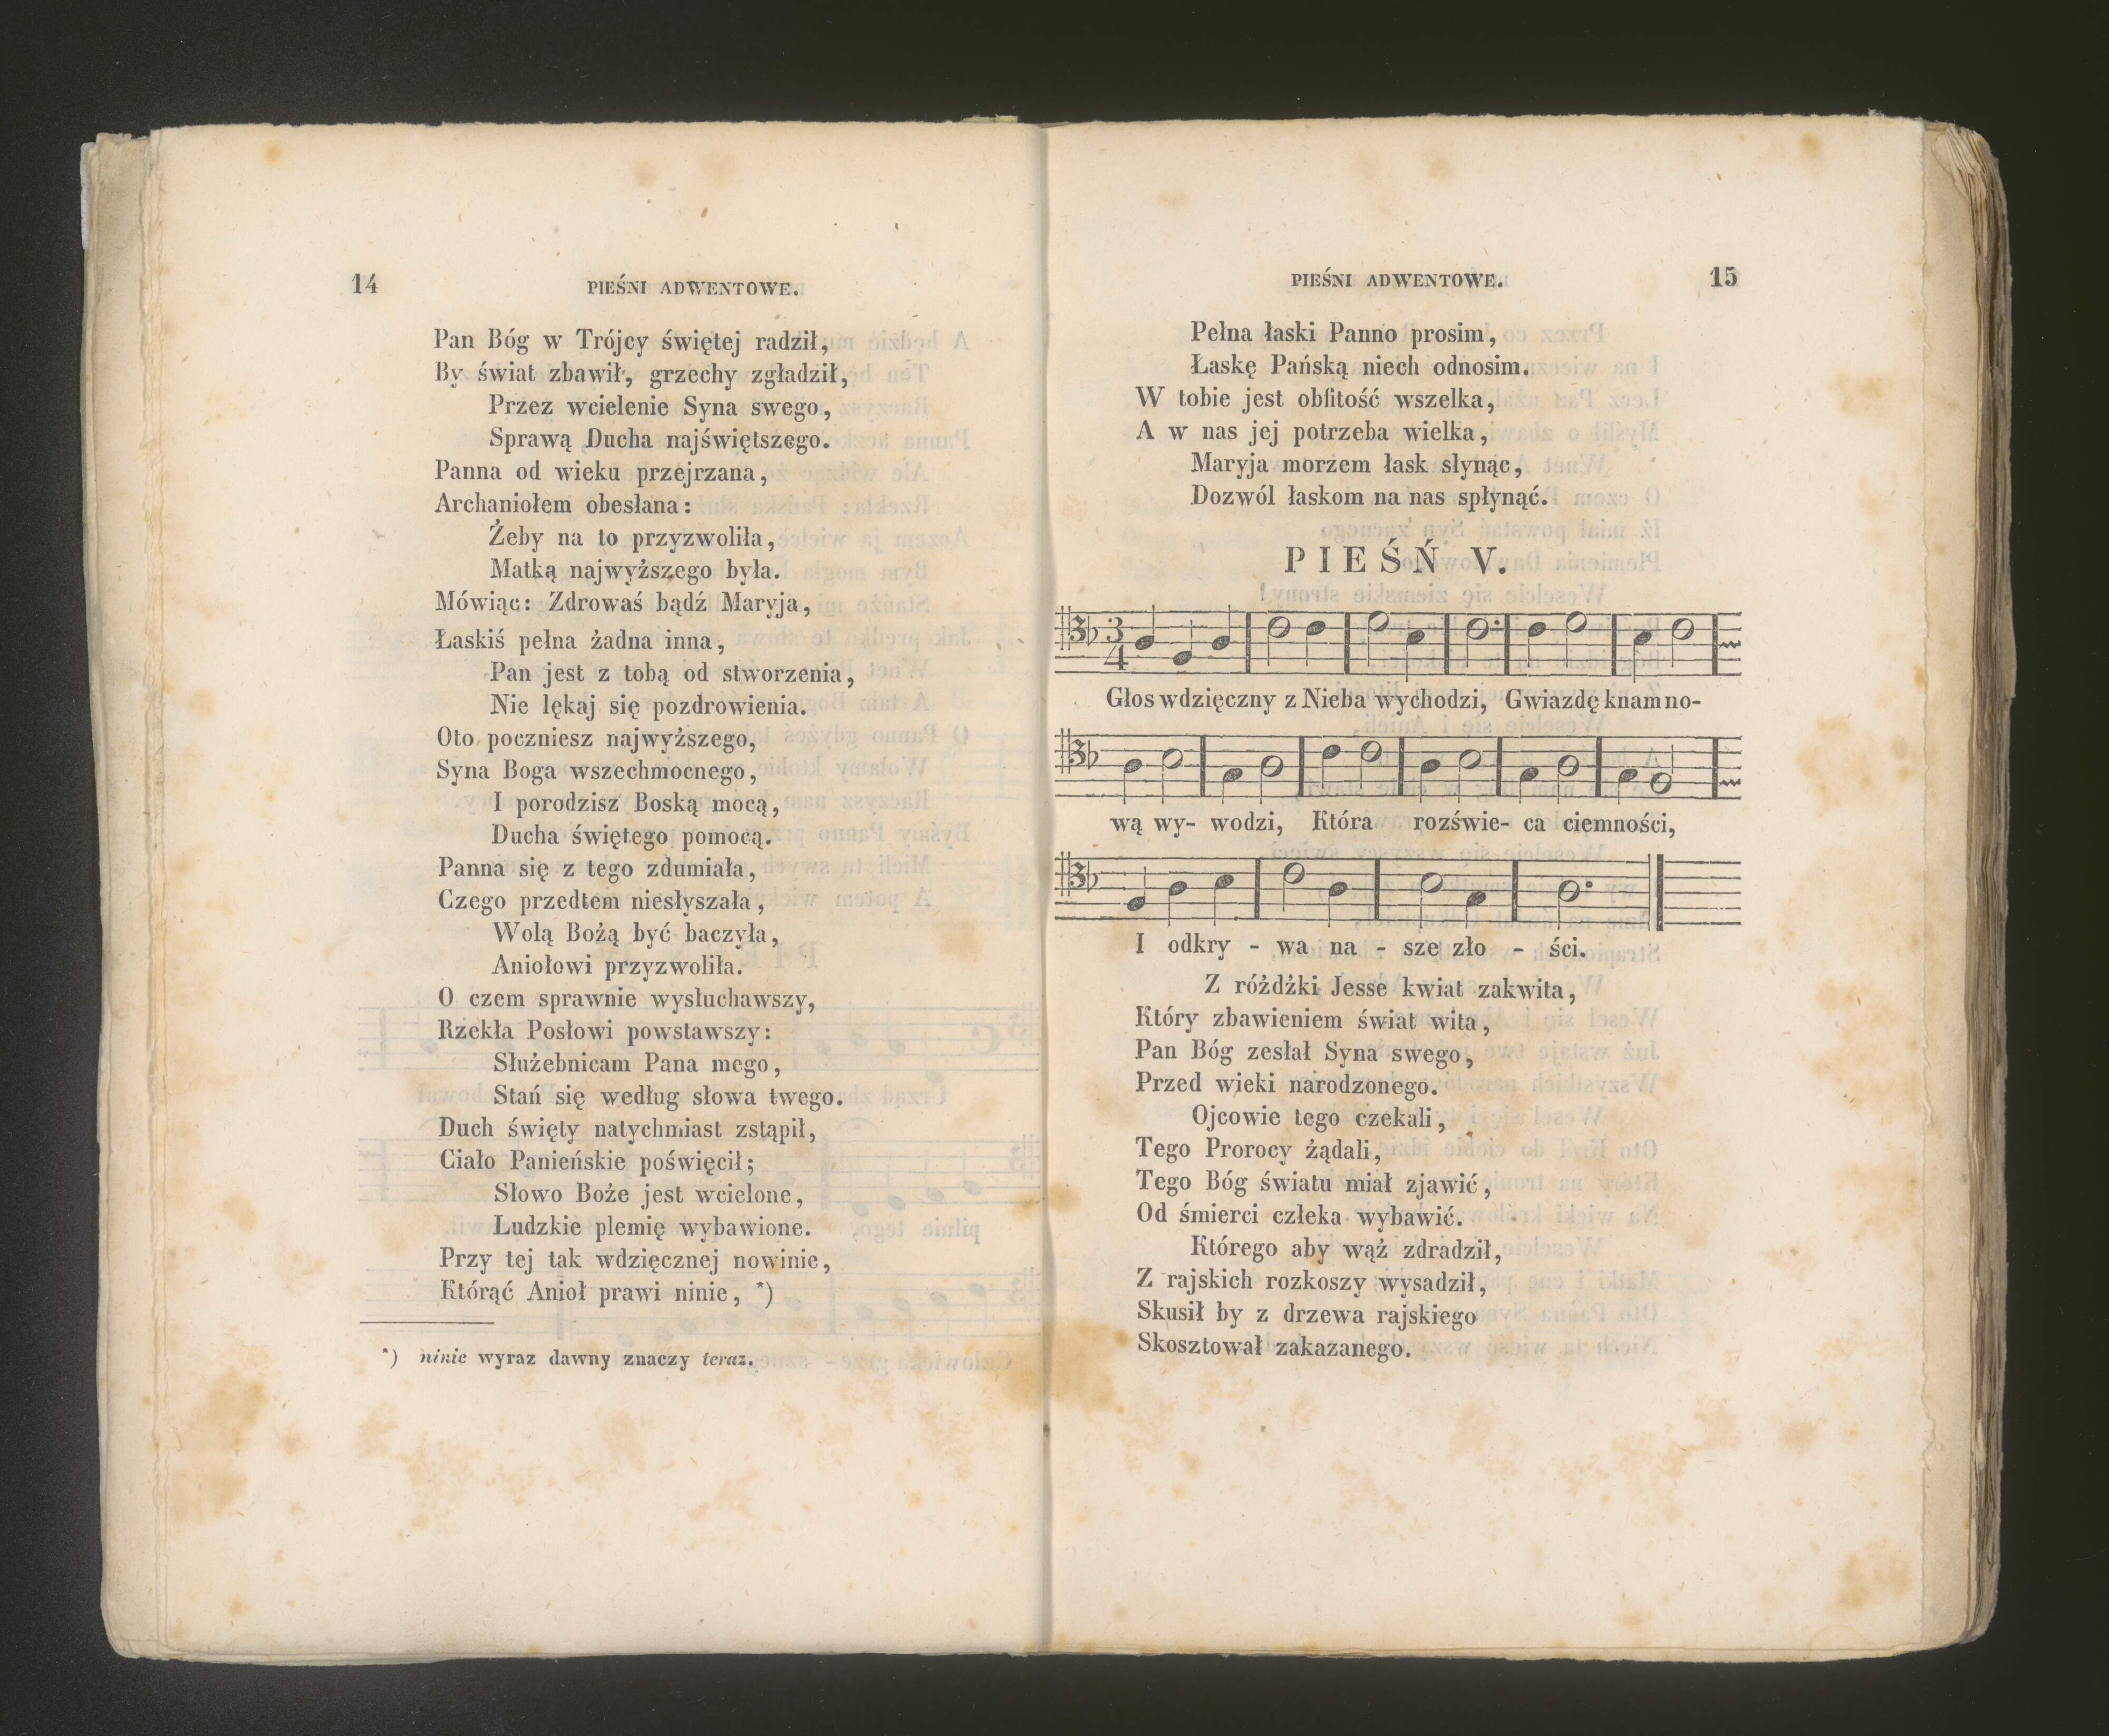 14
PIEŚNI ADWENTOWE.
Pan Bóg w Trójcy świętej radził,
By świat zbawił, grzechy zgładził,
Przez wcielenie Syna swego,
Sprawą Ducha najświętszego.
Panna od wieku przejrzana,
Archaniołem obesłana:
Żeby na to przyzwoliła,
Matką najwyższego była.
Mówiąc: Zdrowaś bądź Maryja,
Łaskiś pełna żadna inna,
Pan jest z tobą od stworzenia,
Nie lękaj się pozdrowienia.
Oto poczniesz najwyższego,
Syna Boga wszechmocnego,
I porodzisz Boską mocą,
Ducha świętego pomocą.
Panna się z tego zdumiała,
Czego przedtem niesłyszała,
Wolą Bożą być baczyła,
Aniołowi przyzwoliła.
O czem sprawnie wysłuchawszy,
Rzekła Posłowi powstawszy:
Służebnicam Pana mego,
Stań się według słowa twego.
Duch święty natychmiast zstąpił,
Ciało Panieńskie poświęcił;
Słowo Boże jest wcielone,
Ludzkie plemię wybawione.
Przy tej tak wdzięcznej nowinie,
Którąć Anioł prawi ninie, *)
*) ninie wyraz dawny znaczy teraz.
PIEŚNI ADWENTOWE.
15
Pełna łaski Panno prosim,
Łaskę Pańską niech odnosim.
W tobie jest obfitość wszelka,
A w nas jej potrzeba wielka,
Maryja morzem łask słynąc,
Dozwól łaskom na nas spłynąć.
PIEŚŃ V.
3
4
Głos wdzięczny z Nieba wychodzi, Gwiazdę knam no-
wą wy- wodzi, Która rozświe- ca ciemności,
I odkry - wa na - sze zło - ści.
Z różdżki Jesse kwiat zakwita,
Który zbawieniem świat wita,
Pan Bóg zesłał Syna swego,
Przed wieki narodzonego.
Ojcowie tego czekali,
Tego Prorocy żądali,
Tego Bóg światu miał zjawić,
Od śmierci człeka wybawić.
Którego aby wąż zdradził,
Z rajskich rozkoszy wysadził,
Skusił by z drzewa rajskiego
Skosztował zakazanego.